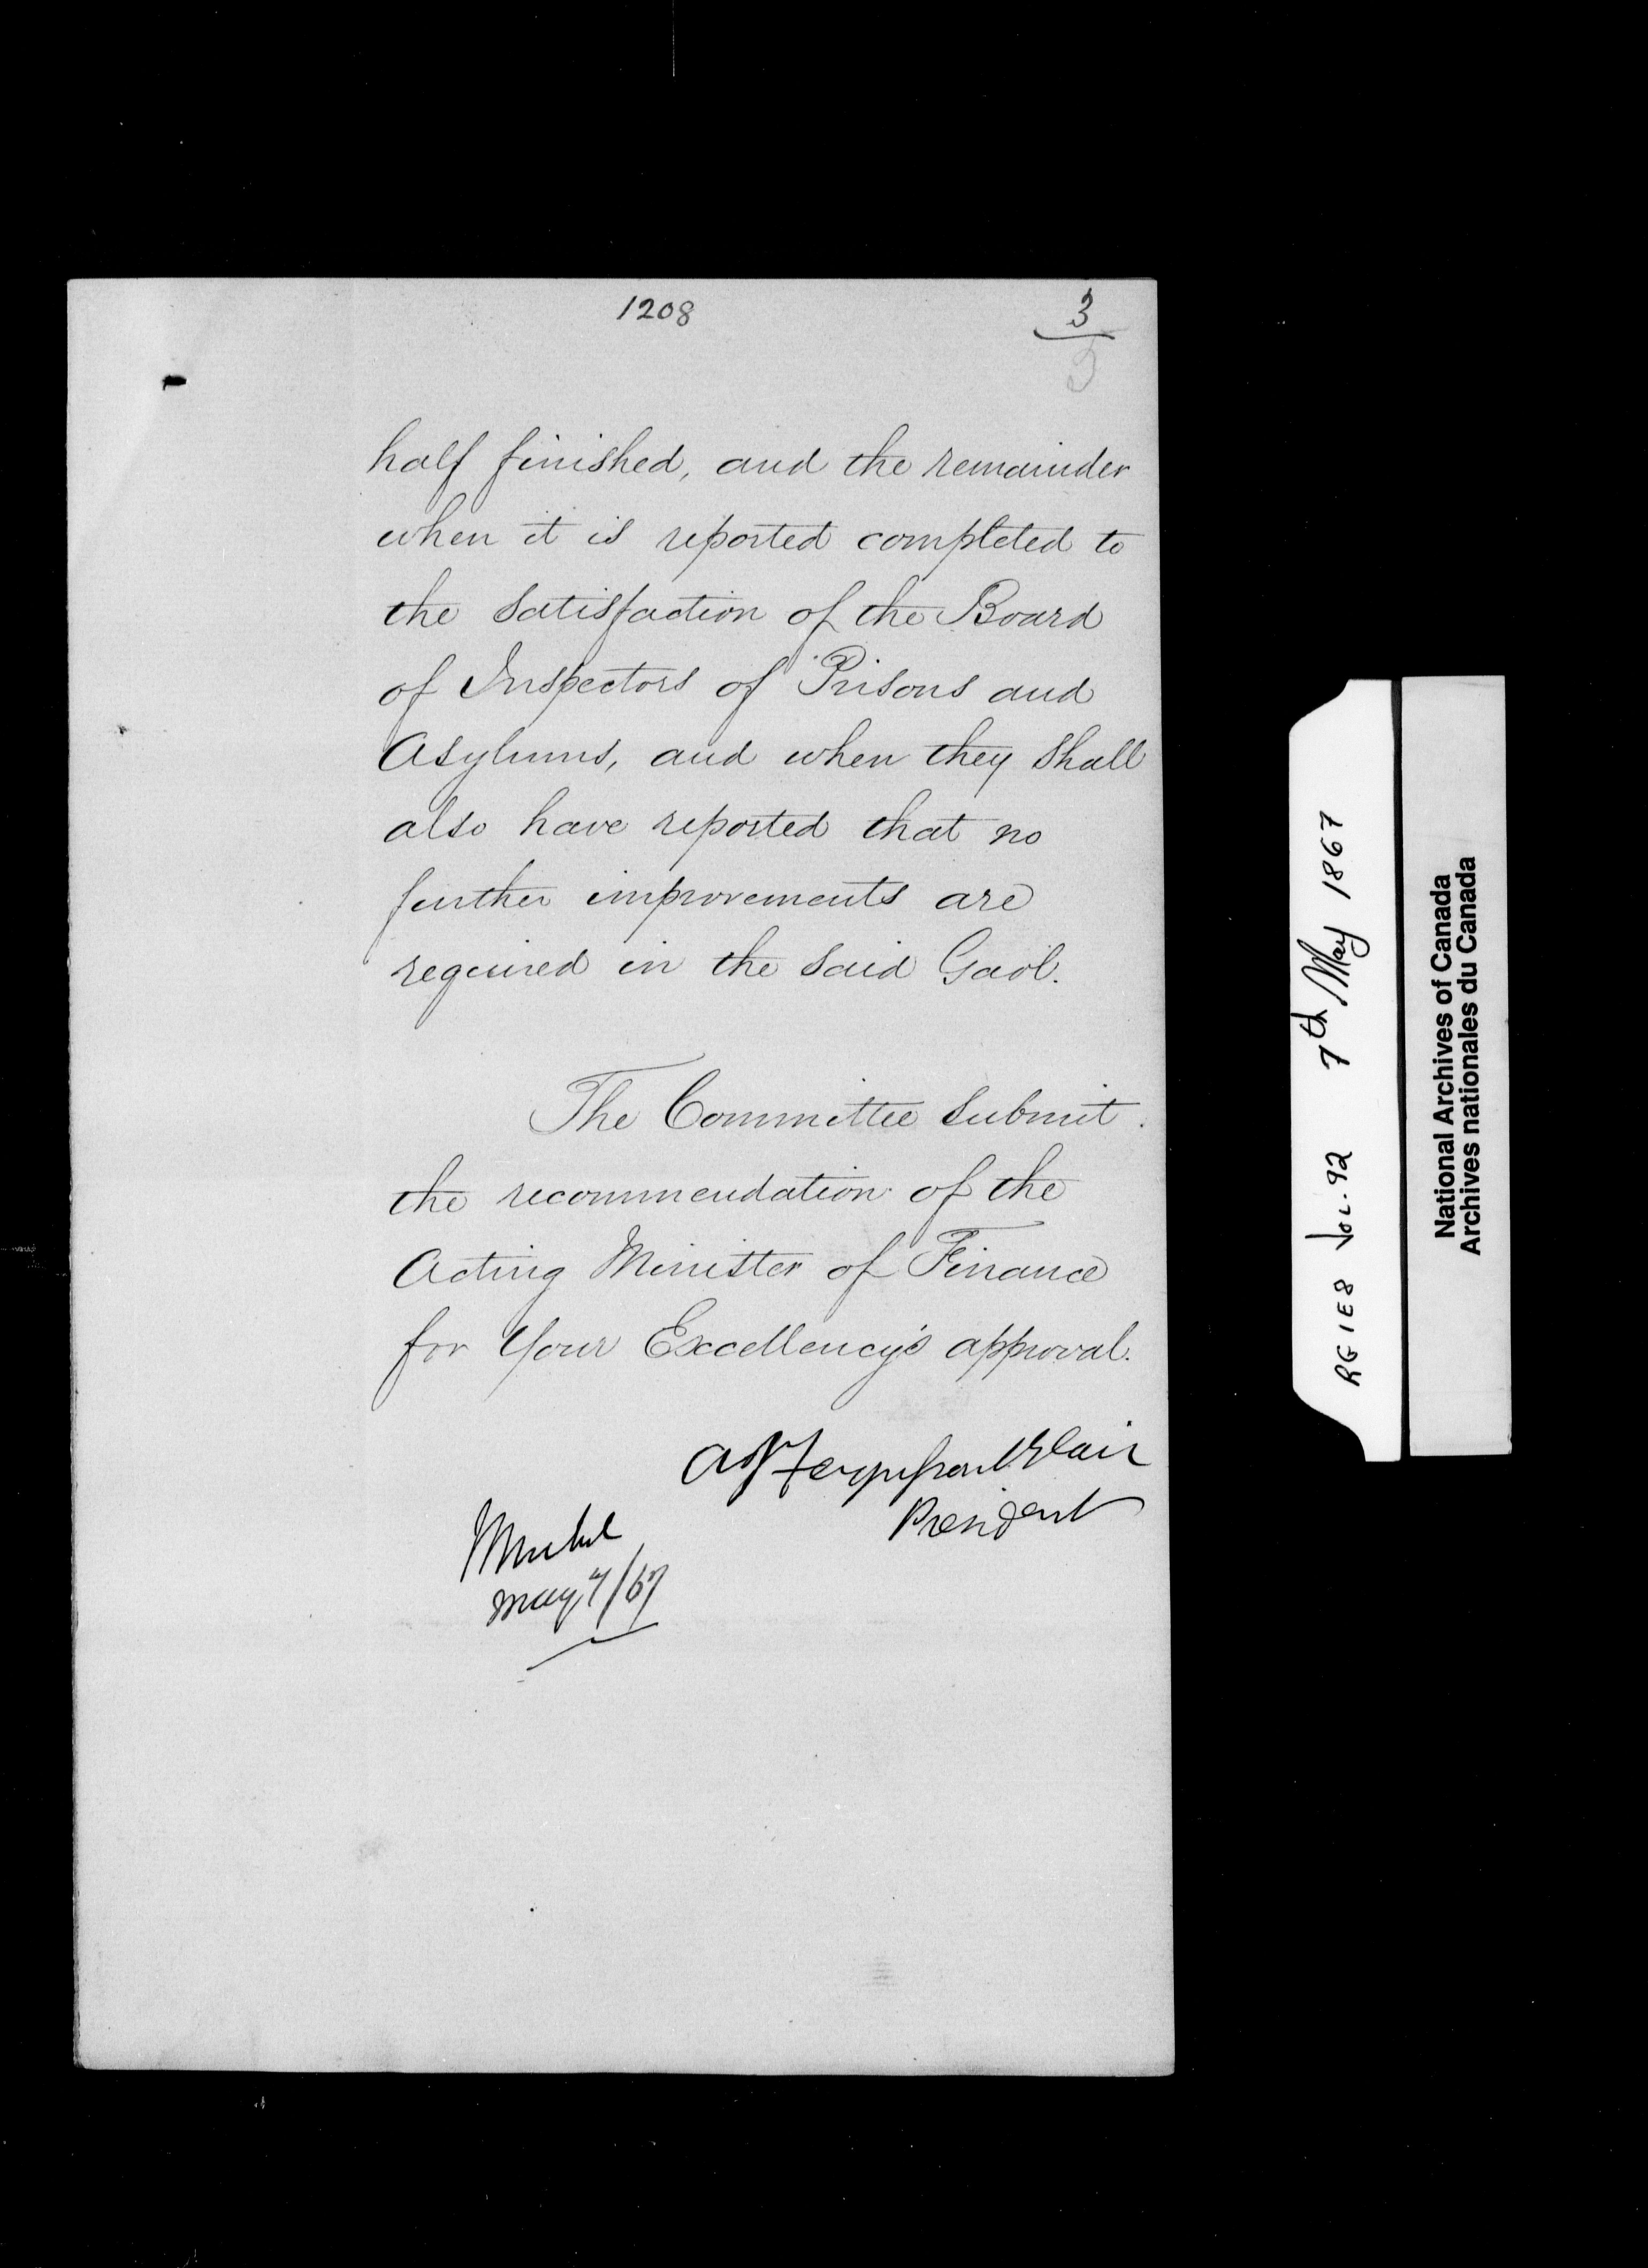 1208
3
3
half finished, and the remainder
when it is reported completed to
the satisfaction of the Board
of Inspectors of Prisons and
Asylums, and when they shall
also have reported that no
further improvements are
required in the said Gaol.
The Committee submit
the recommendation of the
Acting Minister of Finance
for Your Excellency's approval.
A J Fergusson Blair
President
May 7/67
RG 1 E8 VOL. 92 7th May 1867
National Archives of Canada
Archives nationales du Canada